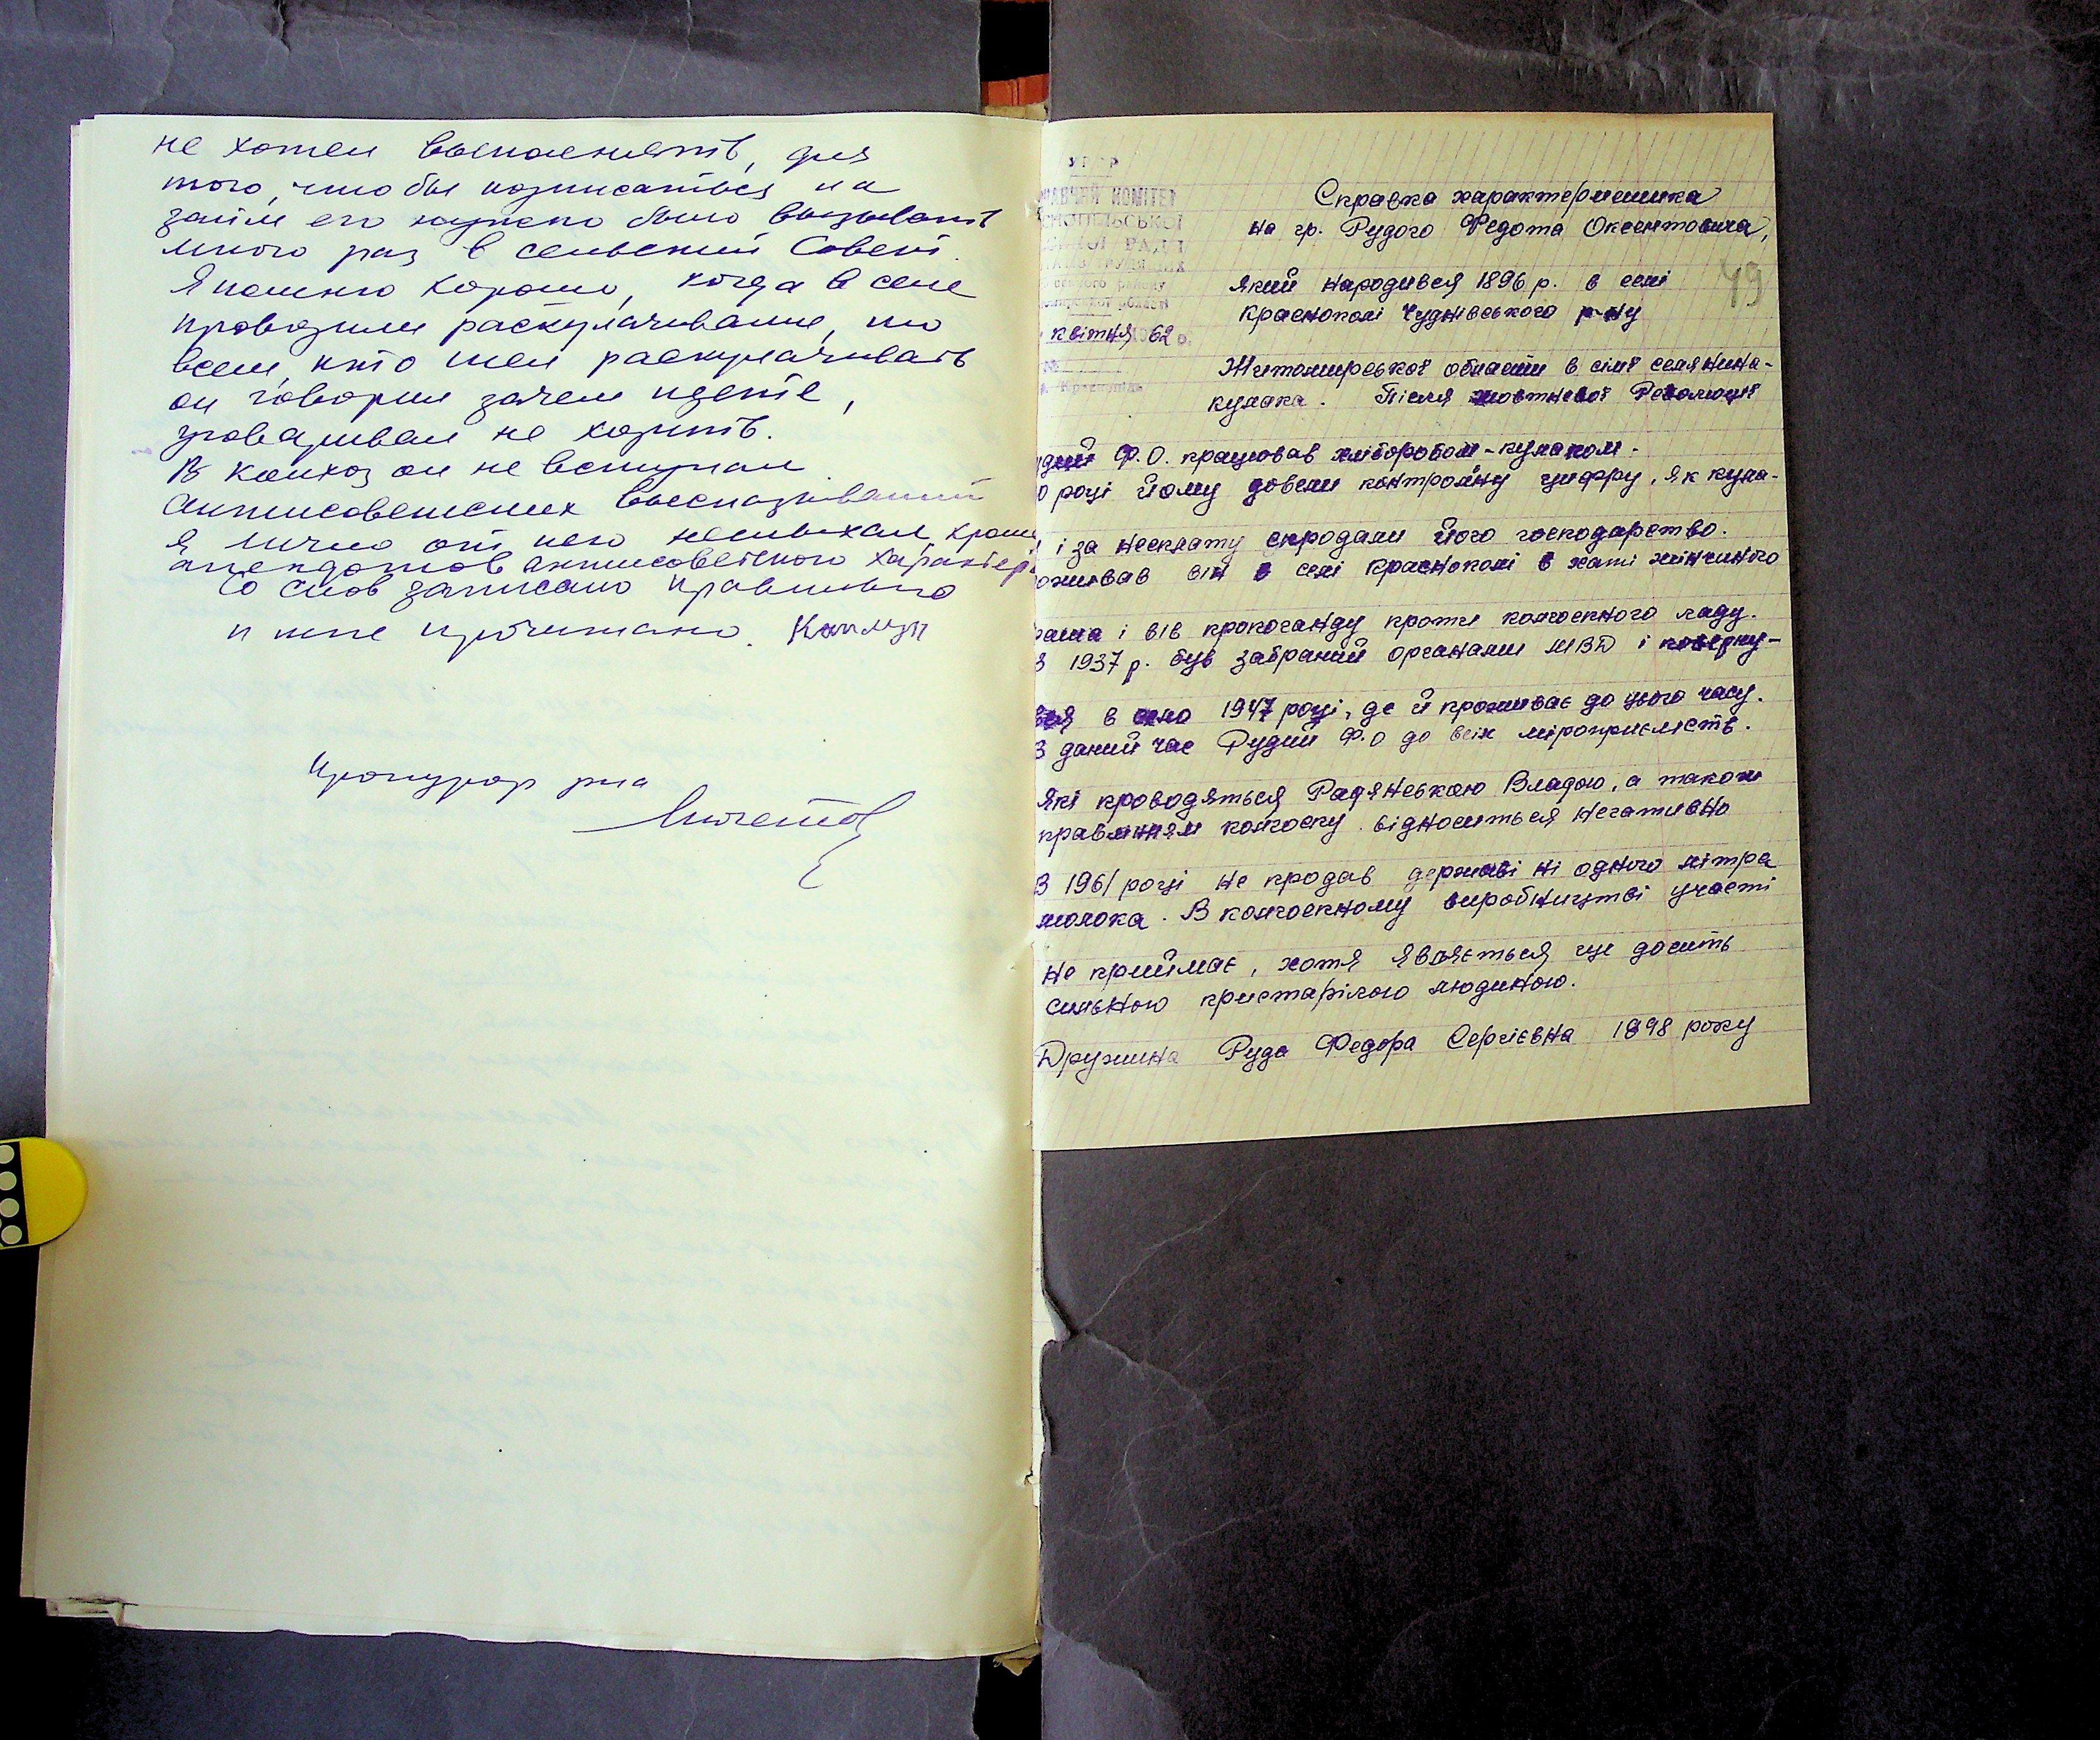 не хотел выполнять, для
того, что бы подписаться на
займ его нужно было вызывать
много раз в сельский Совет.
Я помню хорошо, когда в селе
проводили раскулачивание, то
всем, кто шел раскулачивать
он говорил зачем идете,
уговаривал не ходить.
В колхоз он не вступал
антисоветских высказываний
я лично от него неслыхал, кроме
анекдотов антисоветского характера
Со слов записано правильно
и мне прочитано.
Прокурор р-на
УРСР
КОМІТЕТ
РАДИ
квітня 62 р.
49
Справка характеристика
на гр. Рудого Федота Оксентовича,
який народився 1896 р. в селі
Краснополі Чуднівського р-ну
Житомирської області в сімї селянина-
кулака. Після жовтневої Революції
удий Ф.О. працював хліборобом-кулаком.
0 році йому довели контрольну цифру, як кула-
і за несплату спродали його господарство.
оживав він в селі Краснополі в хаті жінчиного
і вів пропоганду проти колгоспного ладу.
В 1937 р. був забраний органами МВД і поверну-
вся в село 1947 році, де й проживає до цього часу.
В даний час Рудий Ф.О до всіх міроприємств.
які проводяться Радянською Владою, а також
правлінням колгоспу відноситься негативно
В 1961 році не продав державі ні одного літра
молока. В колгоспному виробництві участі
не приймає, хотя являється ще досить
сильною пристарілою людиною.
Дружина Руда Федора Сергієвна 1898 року